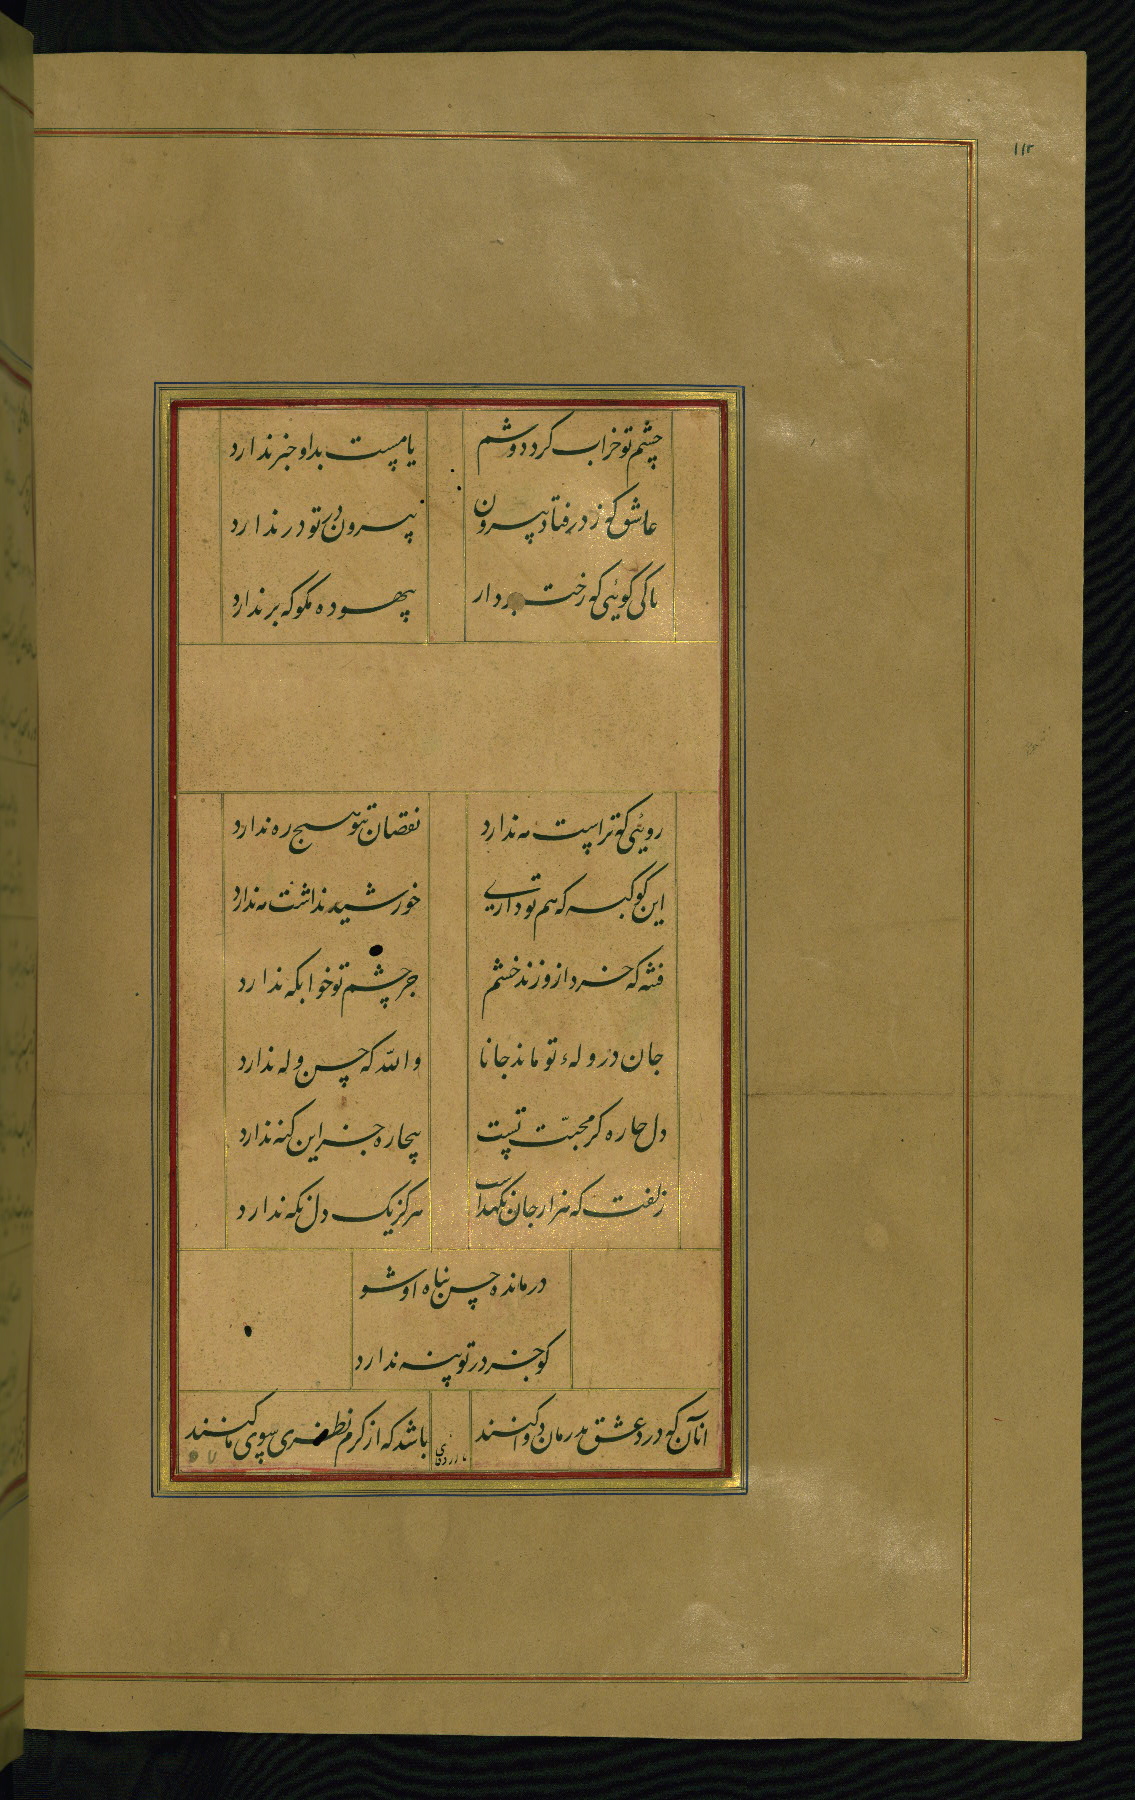 ۱۱۲
چشم تو خراب کرد دوشم یا مست بد او خبر ندارد
عاشق کو ز در فتاد بیرون بیرون در تو در ندارد
تا کی گوئی که رخت بردار بیهوده مگو که بر ندارد
روئی که تراست مه ندارد نقصان بتو هیچ ره ندارد
این کوکبه که هم تو داری خورشید نداشت مه ندارد
فتنه که خرد ازو زند خشم جز چشم تو خوابگه ندارد
جان در وله تو ماند جانا والله که چنین وله ندارد
دل چاره گر محبت تست بیچاره جز این گنه ندارد
زلفت که هزار جان نگهداشت هرگز یک دل نگه ندارد
درمانده حسن پناه او شو
کو جز در تو پنه ندارد
آنان که درد عشق بدرمان دوا کنند باشد که از کرم نظری سوی ما کنند